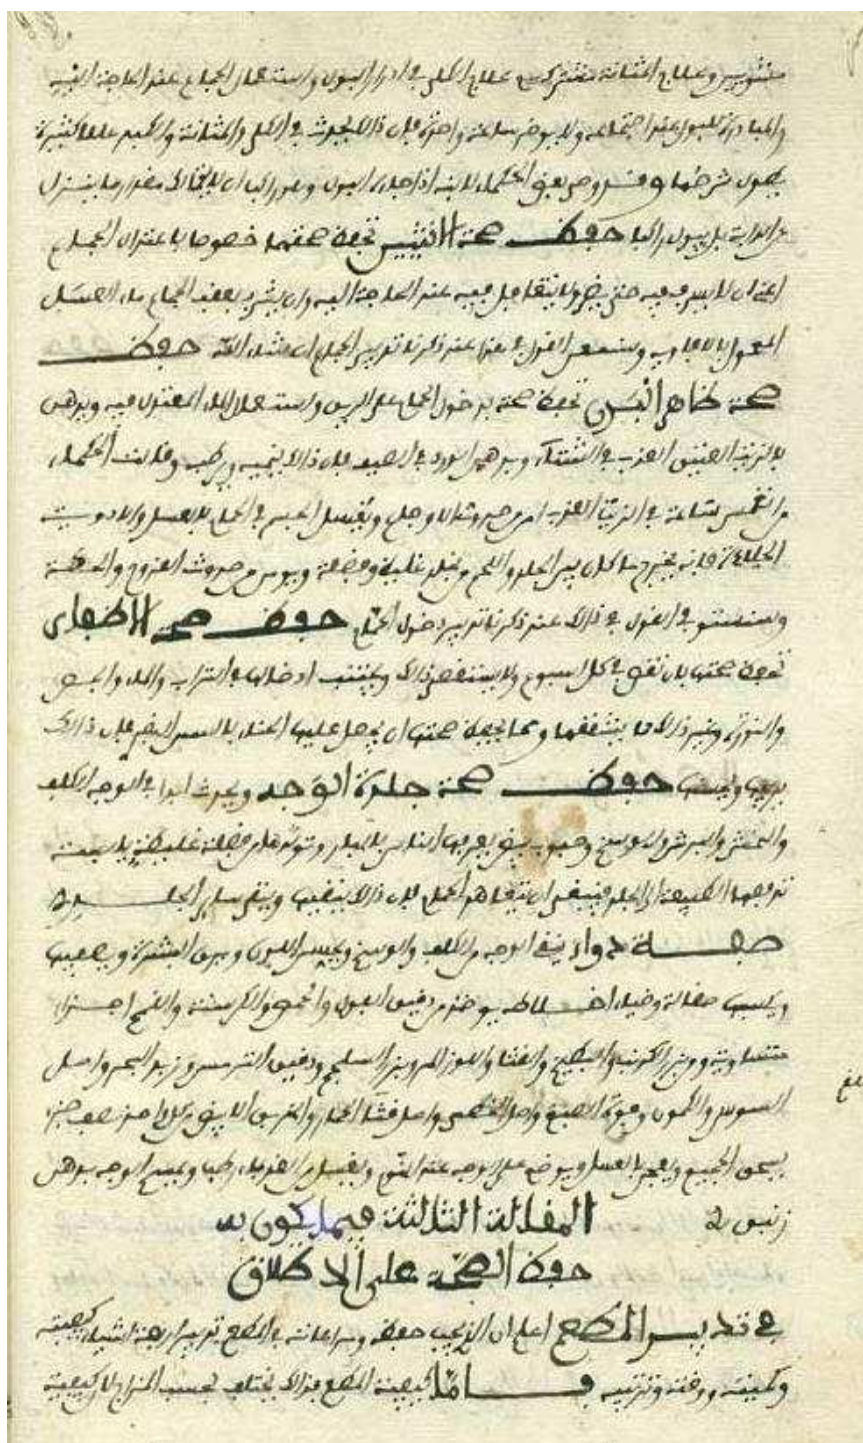 وعلاج المثانة مشترك مع علاج الكلى في ادرار البول واستعمال الجماع عند الحاجة اليه
والمبادرة للبول عند اجتماعه ولا يوخر ساعة واحدة فان ذلك يحدث في الكلى والمثانة والكبد عللا كثيرة
يطول شرحها وقد وصى بعض الحكماء لابنه اذا جاءه البول وهو راكب ان لا يمسك مقدار ما ينزل
عن الدابة بل يبول راكبا حفظ صحة الانثيين تحفظ صحتهما خصوصا باعتدال الجماع
اعني ان لا يسرف فيه حتى يضر ولا يتقاعد فيه عند الحاجة اليه وان يشرب بعقب الجماع ماء العسل
المعمول بالافاويه وسنستقصي القول في هذا عند ذكرنا تدبير الجماع ان شاء الله حفظ
صحة ظاهر البدن تحفظ صحته بدخول الحمام على الريق واستعمال الماء المعتدل فيه ويدهن
بالزيت العتيق العذب في الشتاء وبدهن الورد في الصيف فان ذلك ينميه ويرطبه وقالت الحكماء
من انغمس ساعة في الزيت العذب امن حدوث الاوجاع ويغسل الجسم في الحمام بالعسل والادوية
الجلاءة فانه يخرج ما كان بين الجلد واللحم من خلط غليظ وفضلة ويومن من حدوث القروح والحكة
وسنستوفي القول في ذلك عند ذكرنا تدبير دخول الحمام حفظ صحة الاظفار
تحفظ صحتها بان تقص في كل اسبوع ولا يستقصى ذلك ويجتنب ادخالها في التراب والماء والجص
والنورة وغير ذلك مما يشققها ومما يحفظ صحتها ان يجعل عليها الحناء بالسمن البقري فان ذلك
يربيها ويحسنها حفظ صحة جلدة الوجه ويحدث ابدا في الوجه الكلف
والنمش والبرش والاوساخ وحبوب بيض يعرفها الناس وتولدها من فضلة غليظة يابسة
تدفعها الطبيعة الى الجلد فينبغي ان يتعاهد الحمام فان ذلك ينقيها وينقي ساير الجلد
صفة دواء ينقي الوجه من الكلف والوسخ ويحسن اللون ويرق البشرة ويصفيها
ويكسبها صقالة وضياء اخلاطه يوخذ من دقيق الفول والحمص والكرسنة والقمح اجزاء
متساوية ومن زريعة البطيخ والقثاء واللوز المر وبزر السلجم ودقيق الترمس وزبد البحر واصل
السوس والكمون وفوة الصبغ واصل الخطمي واصل قثاء الحمار والخربق الابيض من كل واحد نصف جزء
يسحق الجميع ويعجن بالعسل ويوضع على الوجه عند النوم ويغسل من الغد بماء رطب ويمسح الوجه بدهن
زنبق المقالة الثالثة فيما يكون به
حفظ الصحة على الاطلاق
في تدبير المطعم اعلم ان الذي يجب حفظه ومراعاته في المطعم تدبير اربعة اشياء كيفيته
وكميته ووقته وترتيبه فاما كيفية المطعم فذلك يختلف بحسب المزاج لان كيفية